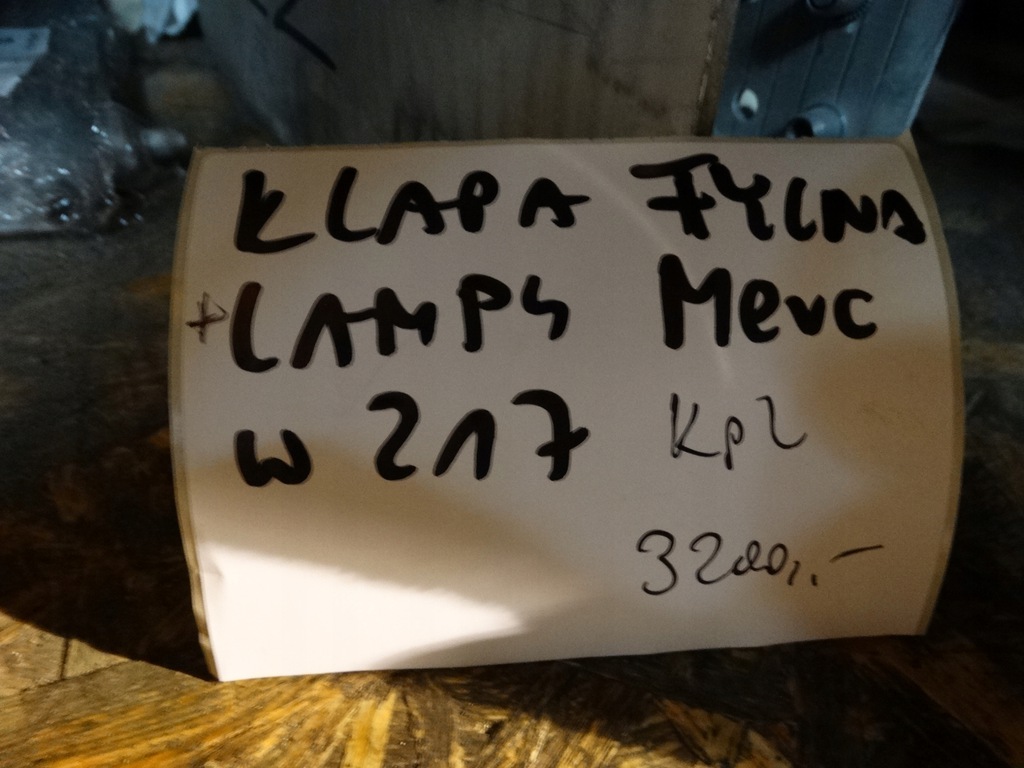 KLAPA TYLNA
+ LAMPY Merc
W 217 kpl
3200,-